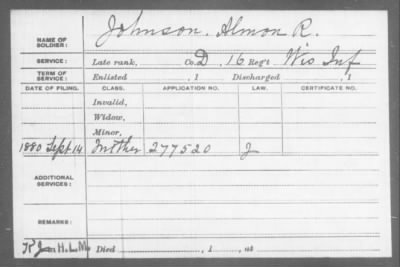 NAME OF SOLDIER: Johnson, Almon R.
SERVICE: Late rank, Co. D, 16 Reg't Wis Inf
TERM OF SERVICE: Enlisted , 1 Discharged , 1
DATE OF FILING. CLASS. APPLICATION NO. LAW. CERTIFICATE NO.
Invalid,
Widow,
Minor,
1880 Sept 14 Mother 277520 J
ADDITIONAL SERVICES:
REMARKS:
H.L.M. Died , 1 , at